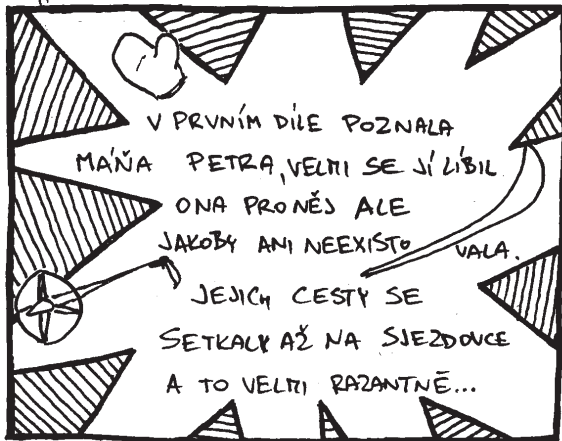 V PRVNÍM DÍLE POZNALA
MÁŇA PETRA, VELMI SE JÍ LÍBIL
ONA PRO NĚJ ALE
JAKOBY ANI NEEXISTO VALA.
JEJICH CESTY SE
SETKALY AŽ NA SJEZDOVCE
A TO VELMI RAZANTNĚ...